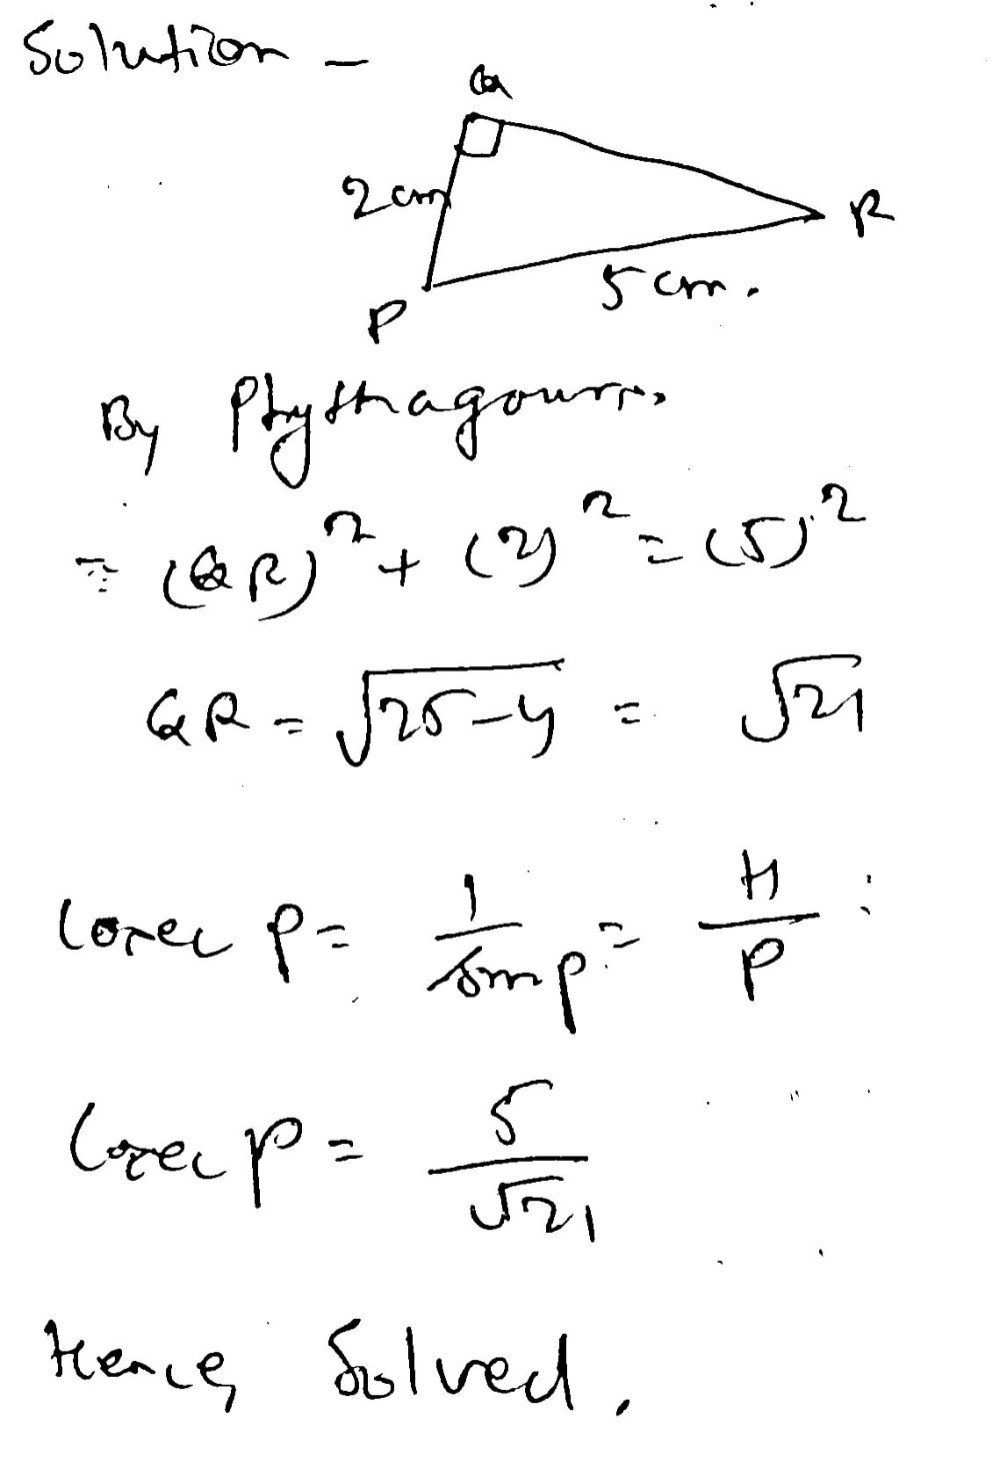 Solution -
Q
2cm
R
5cm.
P
By Phythagours,
= (QR)² + (2)² = (5)²
QR = √25-4 = √21
Cosec P = 1/sin P = H/P
Cosec P = 5/√21
Hence, Solved.